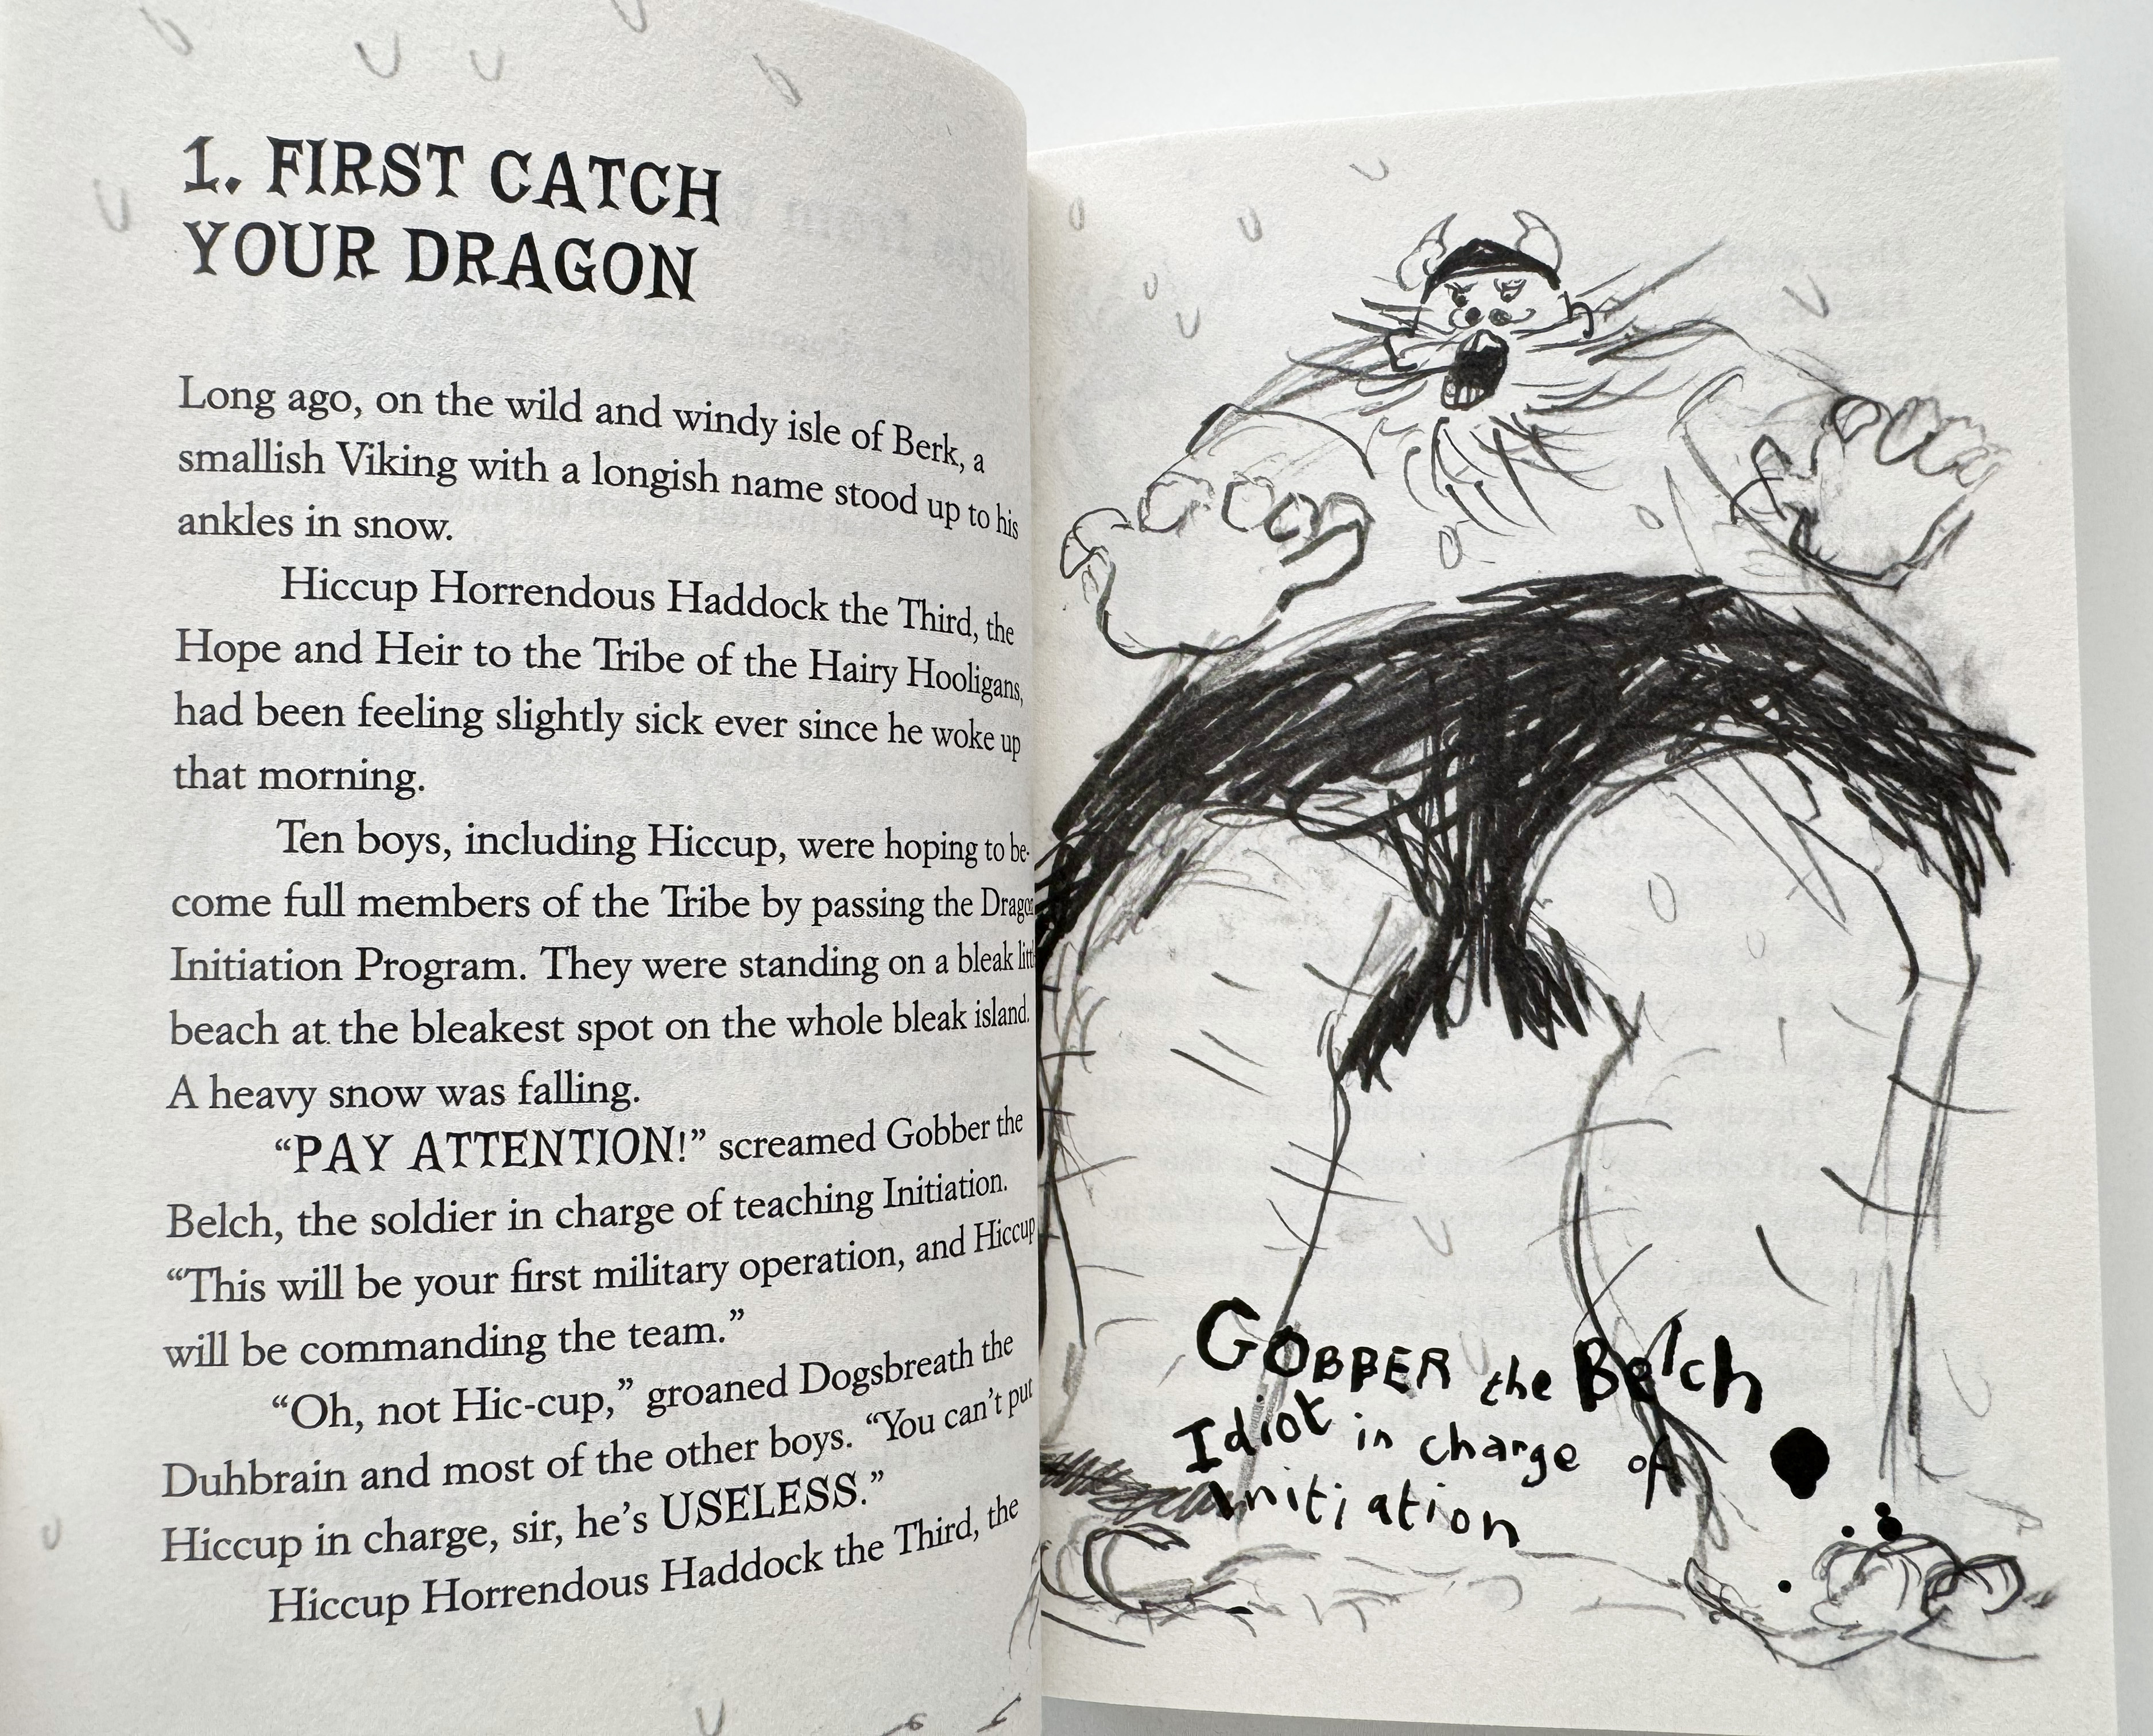 1. FIRST CATCH
YOUR DRAGON
Long ago, on the wild and windy isle of Berk, a
smallish Viking with a longish name stood up to his
ankles in snow.
Hiccup Horrendous Haddock the Third, the
Hope and Heir to the Tribe of the Hairy Hooligans,
had been feeling slightly sick ever since he woke up
that morning.
Ten boys, including Hiccup, were hoping to be-
come full members of the Tribe by passing the Dragon
Initiation Program. They were standing on a bleak little
beach at the bleakest spot on the whole bleak island.
A heavy snow was falling.
“PAY ATTENTION!” screamed Gobber the
Belch, the soldier in charge of teaching Initiation.
“This will be your first military operation, and Hiccup
will be commanding the team.”
“Oh, not Hic-cup,” groaned Dogsbreath the
Duhbrain and most of the other boys. “You can’t put
Hiccup in charge, sir, he’s USELESS.”
Hiccup Horrendous Haddock the Third, the
GOBBER the Belch
Idiot in charge of
initiation